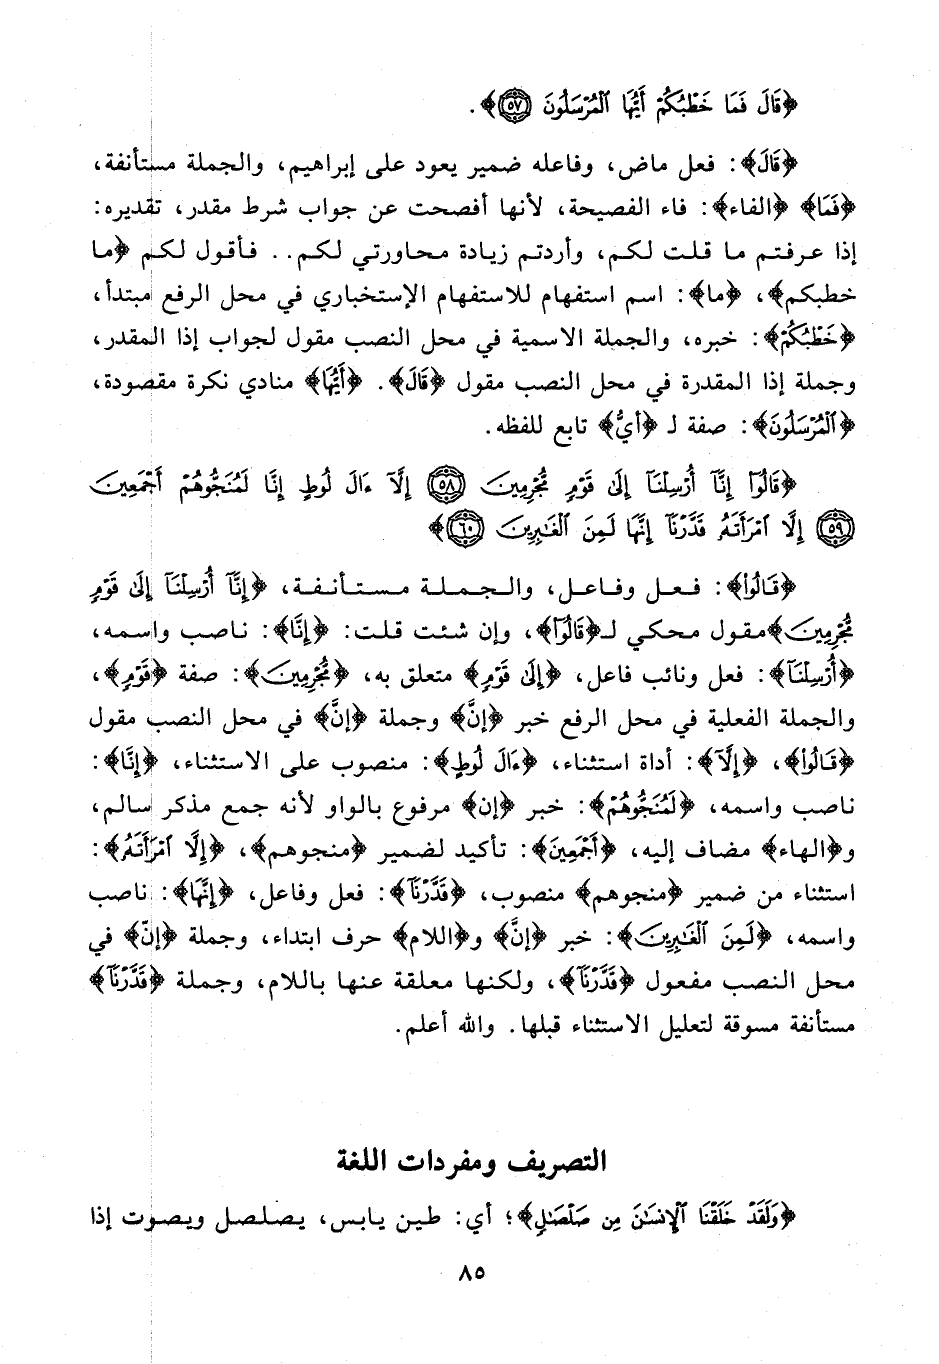 ﴿قَالَ فَمَا خَطْبُكُمْ أَيُّهَا الْمُرْسَلُونَ ﴿٥٧﴾﴾.
﴿قَالَ﴾: فعل ماض، وفاعله ضمير يعود على إبراهيم، والجملة مستأنفة،
﴿فَمَا﴾ ﴿الفاء﴾: فاء الفصيحة، لأنها أفصحت عن جواب شرط مقدر، تقديره:
إذا عرفتم ما قلت لكم، وأردتم زيادة محاورتي لكم.. فأقول لكم ﴿ما
خطبكم﴾، ﴿ما﴾: اسم استفهام للاستفهام الإستخباري في محل الرفع مبتدأ،
﴿خَطْبُكُمْ﴾: خبره، والجملة الاسمية في محل النصب مقول لجواب إذا المقدر،
وجملة إذا المقدرة في محل النصب مقول ﴿قَالَ﴾. ﴿أَيُّهَا﴾ منادي نكرة مقصودة،
﴿الْمُرْسَلُونَ﴾: صفة لـ ﴿أيُّ﴾ تابع للفظه.
﴿قَالُوٓا إِنَّآ أُرْسِلْنَآ إِلَىٰ قَوْمٍ مُّجْرِمِينَ ﴿٥٨﴾ إِلَّآ ءَالَ لُوطٍ إِنَّا لَمُنَجُّوهُمْ أَجْمَعِينَ
﴿٥٩﴾ إِلَّا امْرَأَتَهُ قَدَّرْنَآ إِنَّهَا لَمِنَ الْغَٰبِرِينَ ﴿٦٠﴾﴾
﴿قَالُوٓا﴾: فعل وفاعل، والجملة مستأنفة، ﴿إِنَّآ أُرْسِلْنَآ إِلَىٰ قَوْمٍ
مُّجْرِمِينَ﴾مقول محكي لـ﴿قَالُوٓا﴾، وإن شئت قلت: ﴿إِنَّا﴾: ناصب واسمه،
﴿أُرْسِلْنَآ﴾: فعل ونائب فاعل، ﴿إِلَىٰ قَوْمٍ﴾ متعلق به، ﴿مُّجْرِمِينَ﴾: صفة ﴿قَوْمٍ﴾،
والجملة الفعلية في محل الرفع خبر ﴿إنَّ﴾ وجملة ﴿إنَّ﴾ في محل النصب مقول
﴿قَالُوٓا﴾، ﴿إِلَّآ﴾: أداة استثناء، ﴿ءَالَ لُوطٍ﴾: منصوب على الاستثناء، ﴿إِنَّا﴾:
ناصب واسمه، ﴿لَمُنَجُّوهُمْ﴾: خبر ﴿إن﴾ مرفوع بالواو لأنه جمع مذكر سالم،
و﴿الهاء﴾ مضاف إليه، ﴿أَجْمَعِينَ﴾: تأكيد لضمير ﴿منجوهم﴾، ﴿إِلَّا امْرَأَتَهُ﴾:
استثناء من ضمير ﴿منجوهم﴾ منصوب، ﴿قَدَّرْنَآ﴾: فعل وفاعل، ﴿إِنَّهَا﴾: ناصب
واسمه، ﴿لَمِنَ الْغَٰبِرِينَ﴾: خبر ﴿إنَّ﴾ و﴿اللام﴾ حرف ابتداء، وجملة ﴿إنّ﴾ في
محل النصب مفعول ﴿قَدَّرْنَآ﴾، ولكنها معلقة عنها باللام، وجملة ﴿قَدَّرْنَآ﴾
مستأنفة مسوقة لتعليل الاستثناء قبلها. والله أعلم.
التصريف ومفردات اللغة
﴿وَلَقَدْ خَلَقْنَا الْإِنسَٰنَ مِن صَلْصَٰلٍ﴾؛ أي: طين يابس، يصلصل ويصوت إذا
٨٥